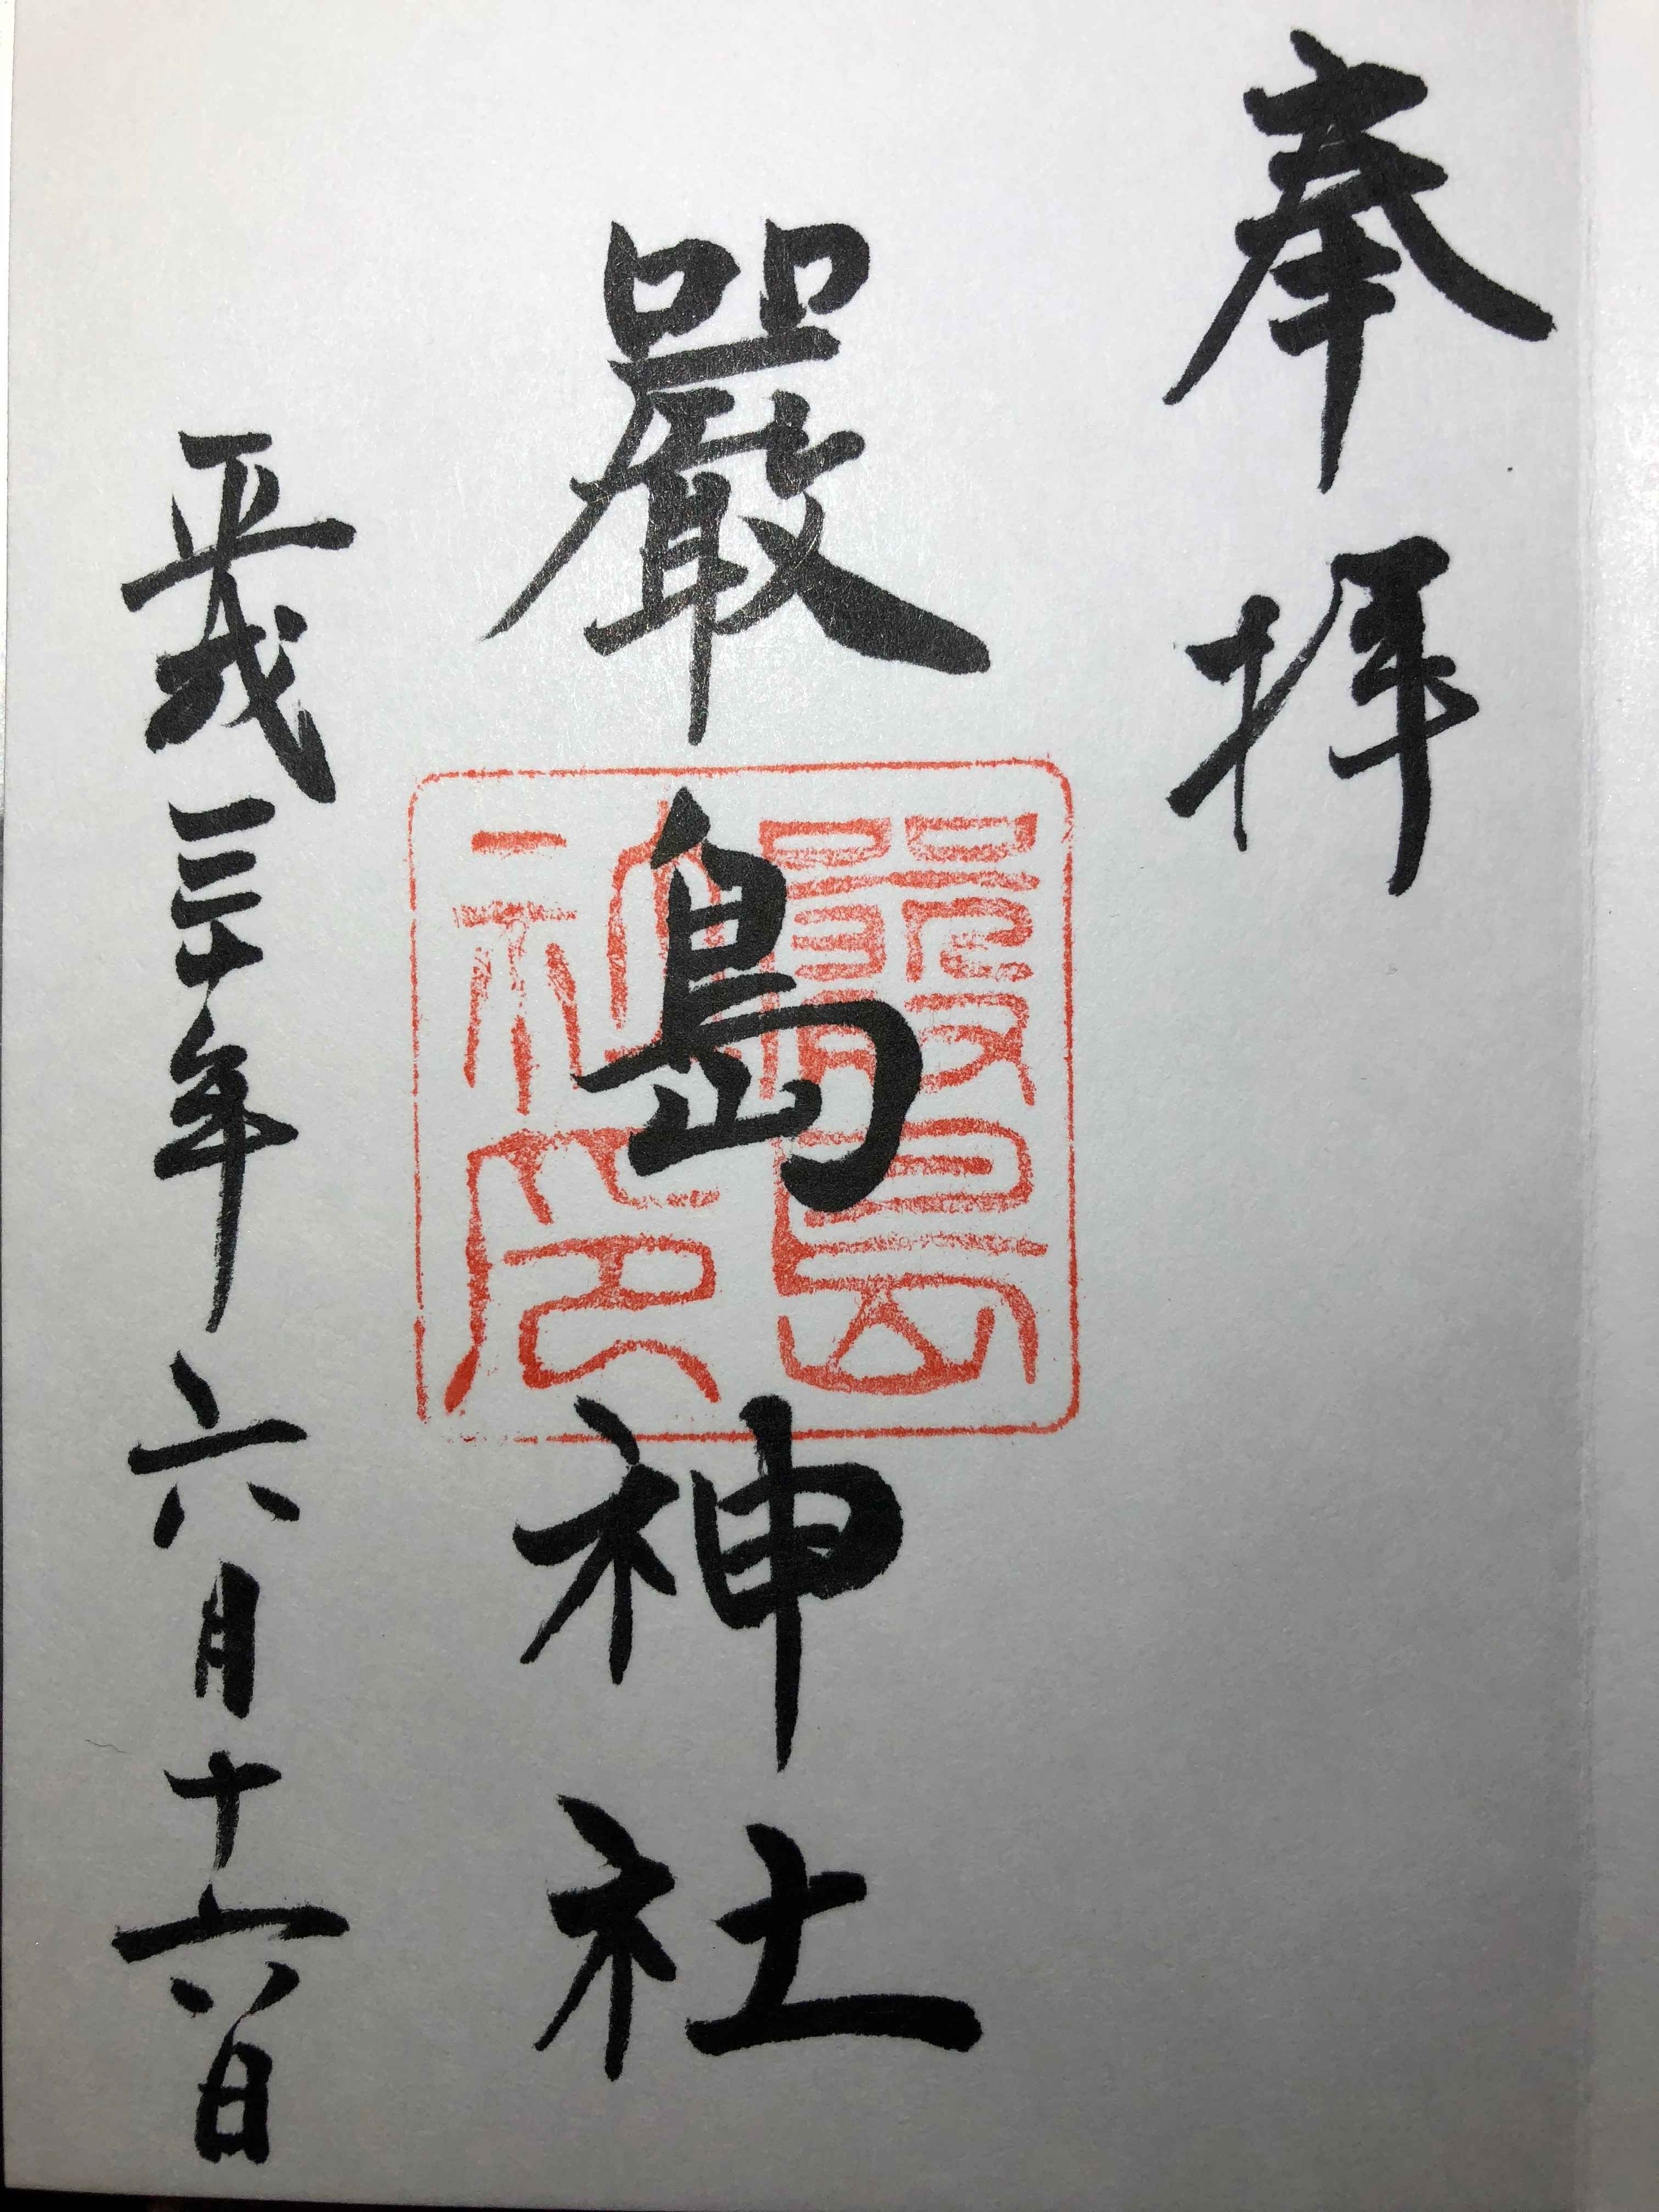 奉拝
嚴島神社
嚴島神印
平成三十年六月十六日